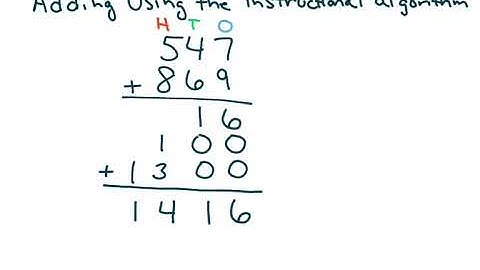 Adding Using the instructional algorithm
H T O
547
+ 869
16
100
+ 1300
1416